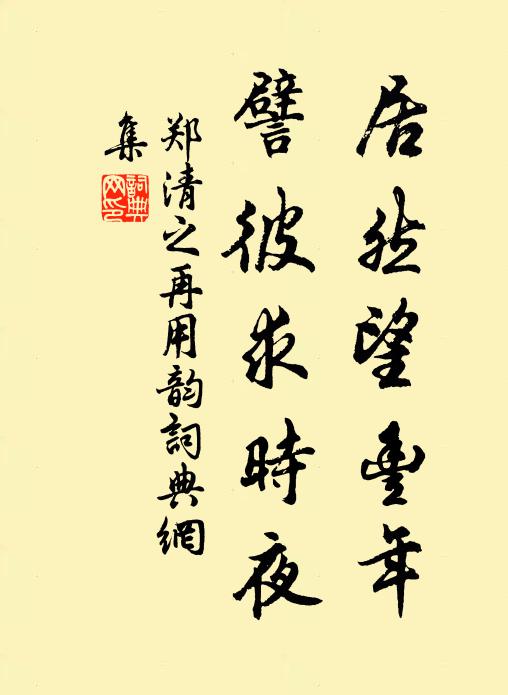 居然望豐年
譬彼求時夜
郑清之再用韵詞典網
集
詞典網印